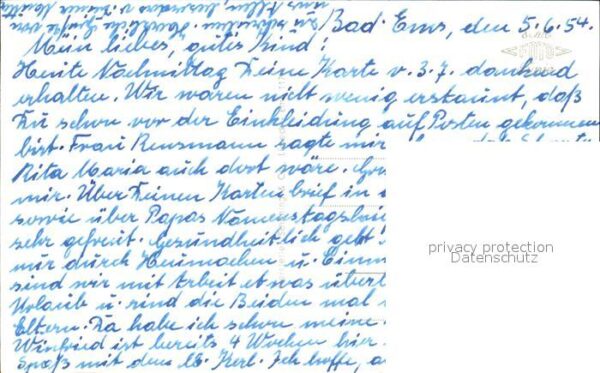 Bad Ems, den 5.6.54.
Mein liebes, gutes Kind!
Heute Nachmittag Deine Karte v. 3.7. dankend
erhalten. Wir waren nicht wenig erstaunt, daß
Du schon vor der Einkleidung auf Posten gekommen
bist. Frau Rensmann sagte mir
Rita Maria auch dort wäre.
mir. Über Deinen Kartenbrief in
sowie über Papas Namenstagsbrief
sehr gefreut. Gesundheitlich geht
mir durch Heumachen u.
sind wir mit Arbeit etwas überl
Urlaub u. sind die Beiden mal
Eltern. Da habe ich schon meine
Winfried ist bereits 4 Wochen hier.
Spaß mit dem lb. Kerl. Ich hoffe,
privacy protection
Datenschutz